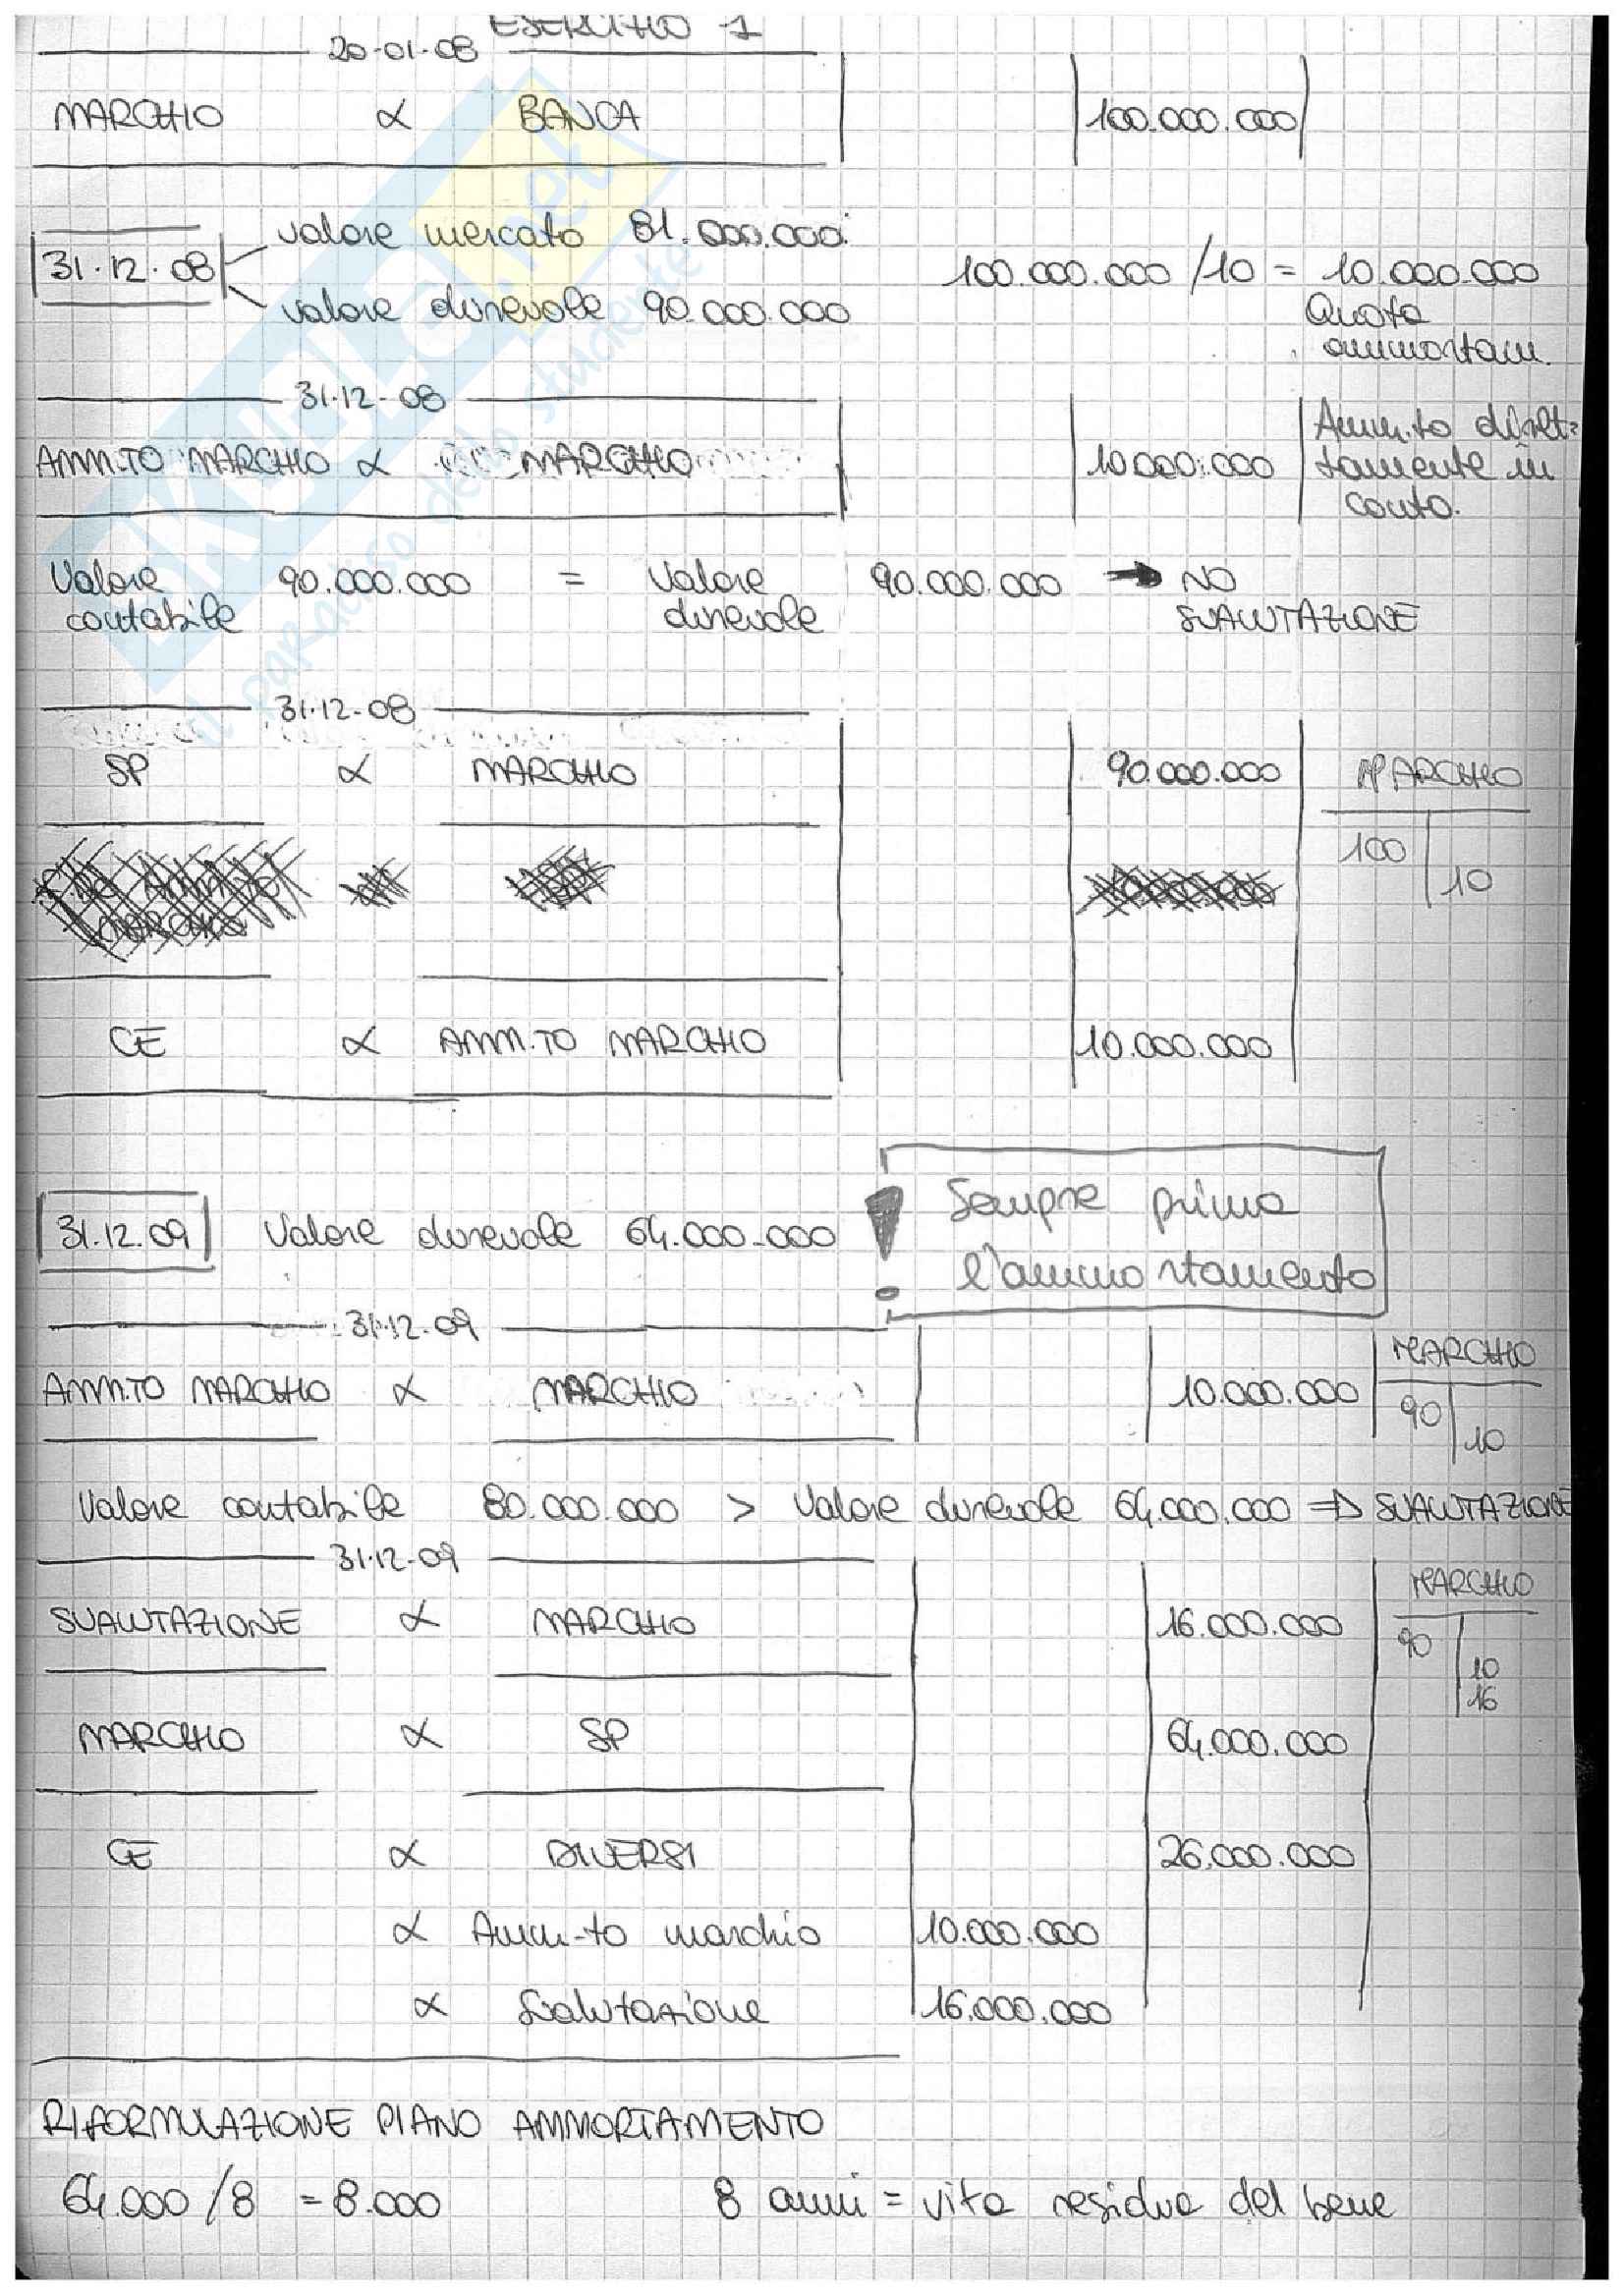 ESERCIZIO 1
20-01-08
MARCHIO a BANCA 100.000.000
valore mercato 81.000.000
31.12.08
100.000.000 /10 = 10.000.000
valore durevole 90.000.000
Quota
ammortam.
31.12-08
Amm.to diret=
AMM.TO MARCHIO a MARCHIO 10.000.000
tamente in
conto.
Valore 90.000.000 = Valore 90.000.000 → NO
contabile durevole SVALUTAZIONE
31.12-08
SP a MARCHIO 90.000.000 MARCHIO
100
10
CE a AMM.TO MARCHIO 10.000.000
Sempre prima
31.12.09 Valore durevole 64.000.000 !
l'ammortamento
31.12.09
MARCHIO
AMM.TO MARCHIO a MARCHIO 10.000.000
90
10
Valore contabile 80.000.000 > Valore durevole 64.000.000 => SVALUTAZIONE
31.12-09
MARCHIO
SVALUTAZIONE a MARCHIO 16.000.000
90
10
16
MARCHIO a SP 64.000.000
CE a DIVERSI 26.000.000
a Amm-to marchio 10.000.000
a Svalutazione 16.000.000
RIFORMULAZIONE PIANO AMMORTAMENTO
64.000 /8 = 8.000 8 anni = vita residua del bene
SKUOLA.net
il paradiso dello studente